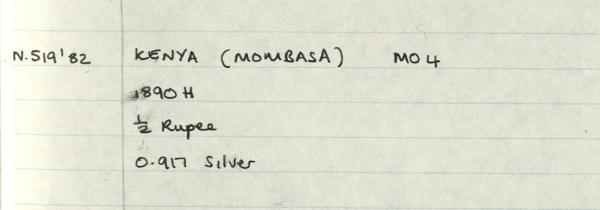 N.519'82 KENYA (MOMBASA) MO 4
1890 H
½ Rupee
0.917 Silver